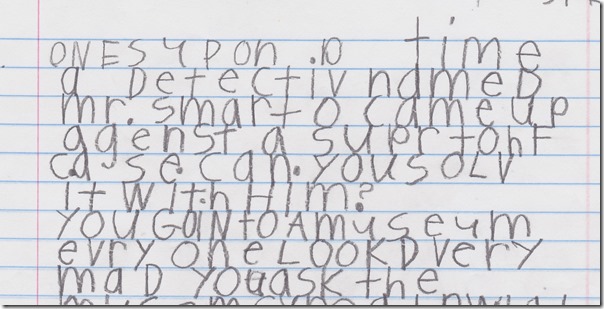 time
ONES UPON .D time
a Detectiv nameD
mr. smarto came up
agenst a supr tohF
ca.se. can. you soLV
it with Him?
you GoIN to A museum
evry one LOOKD very
maD you ask the